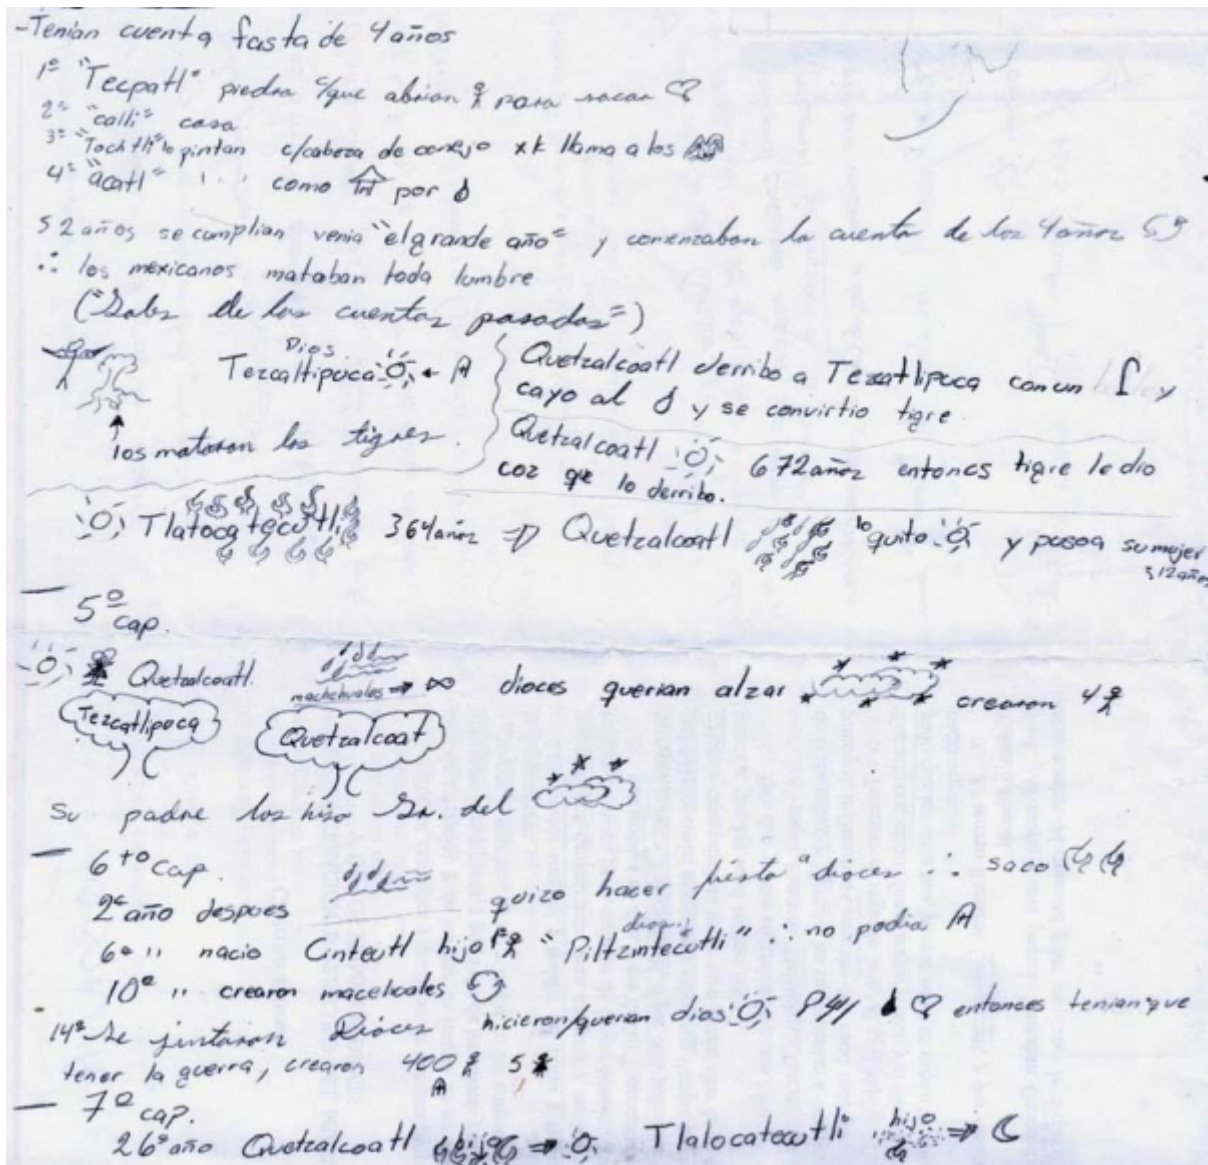 -Tenían cuenta fasta de 4 años
1º "Tecpatl" piedra c/que abrian para sacar
2º "calli" casa
3º "Tochtli" lo pintan c/cabeza de conejo xk llama a los
4º "acatl" ' ' ' como por
52 años se cumplian venia "el grande año" y comenzaban la cuenta de los 4 años
∴ los mexicanos mataban toda lumbre
("Sabz de las cuentas pasadas")
Dios
Tezcaltipoca ←
los mataron los tigres.
Quetzalcoatl derribo a Tezcatlipoca con un y
cayo al y se convirtio tigre.
Quetzalcoatl 672 años entonces tigre le dio
coz que lo derribo.
Tlatocatecutli 364 años ⇒ Quetzalcoatl lo quito y puso a su mujer
312 años
— 5º cap.
Quetzalcoatl.
macehuales → dioces querian alzar crearon 4
Tezcatlipoca
Quetzalcoat
su padre los hiso Sr. del
— 6to cap.
2º año despues quizo hacer fiesta a dioces ∴ saco
6º '' nacio Cinteutl hijo 1º "Piltzintecutli" ∴ no podia
10º '' crearon macehuales
14º Se juntaron Dioces hicieron/querian dios entonces tenian que
tener la guerra, crearon 400 5
— 7º cap.
26º año Quetzalcoatl hijo ⇒ Tlalocatecutli hijo ⇒